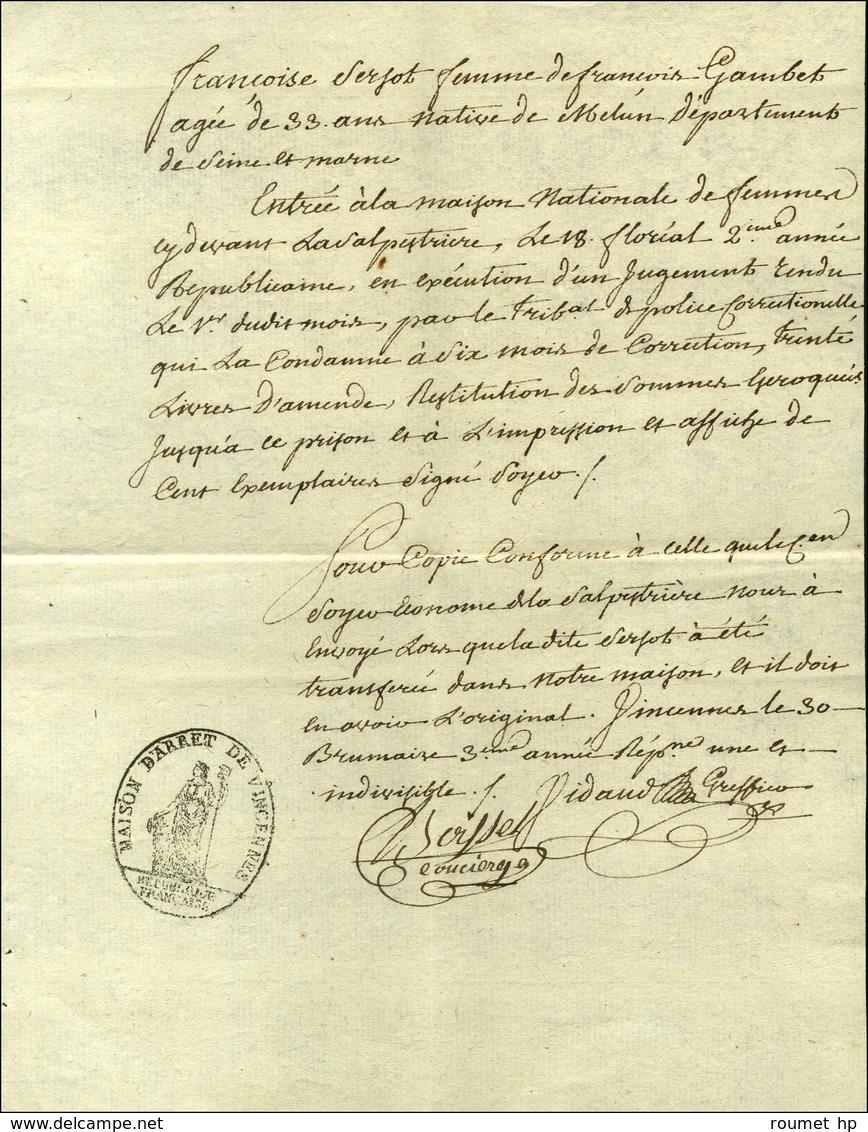 françoise Sersot femme de françois Gambet
agée de 33. ans Native de Melun Département
de Seine et marne
Entrée à la maison Nationale de femmes
cy devant La Salpestrière, Le 18. floréal 2.eme année
Republicaine, en exécution d'un Jugement rendu
Le 1.er dudit mois, par le Trib.al de police Correctionelle
qui La Condamne à Six mois de Correction, trente
Livres d'amende, Restitution des Sommes Escroquées
Jusqu'à ce prison et à L'impression et affiche de
Cent Exemplaires Signé Soyer ./.
Pour Copie Conforme à celle que le C.en
Soyer Econome de la Salpestrière nous à
Envoyé Lors que la dite Sersot à été
transferée dans notre maison, et il doit
en avoir L'original. Vincennes le 30
Brumaire 3.eme année Rép.ne une et
indivisible ./. Vidaud Greffier
concierge
MAISON D'ARRET DE VINCENNES
REPUBLIQUE
FRANÇAISE
www.delcampe.net
roumet hp